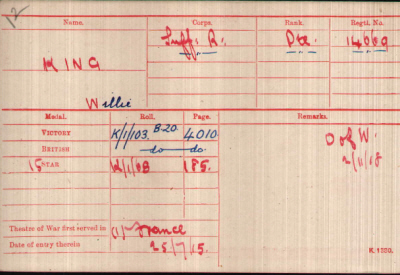 12
Name. Corps. Rank. Regtl. No.
KING Suff. R. Pte. 14669
Willie
Medal. Roll. Page. Remarks.
VICTORY K/1/103. B.20. 4010 D of W.
BRITISH —do— do. 2/11/18
15 STAR K/1/08 185.
Theatre of War first served in (1) France
Date of entry therein 25/7/15.
K. 1380.